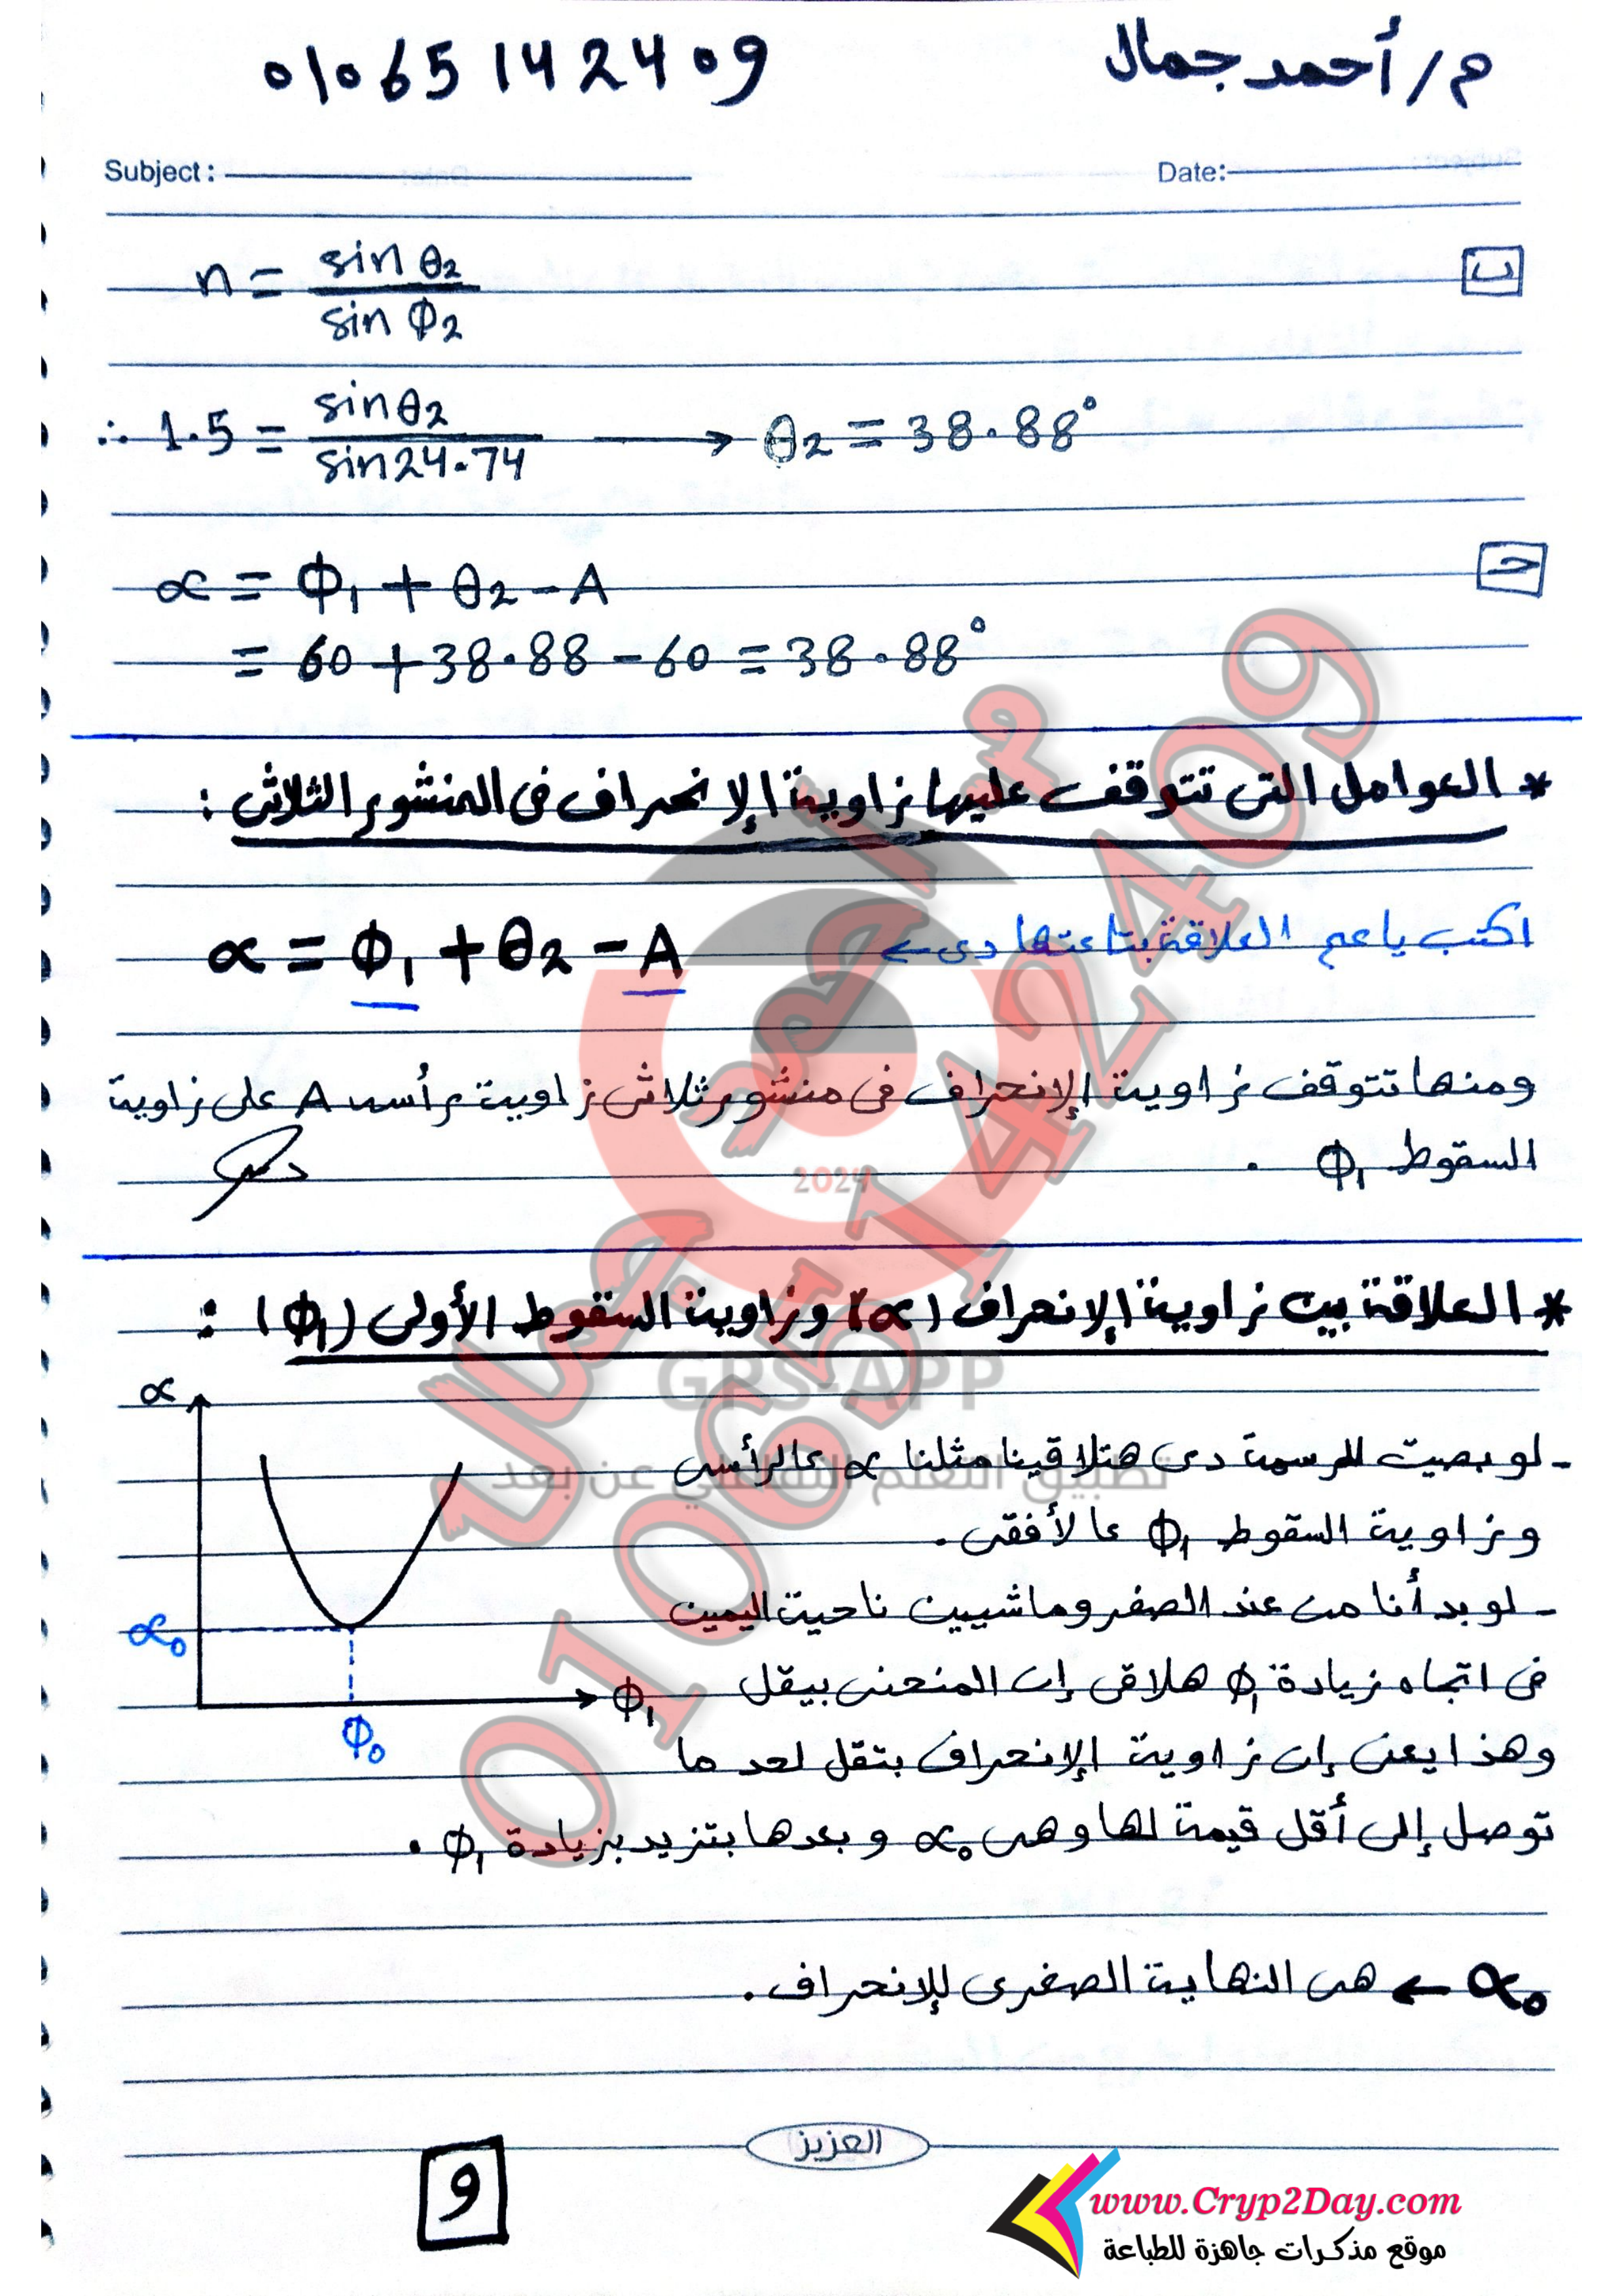 م/أحمد جمال
01065142409
Subject:
Date:
ب
n = sin θ2 / sin Φ2
∴ 1.5 = sin θ2 / sin 24.74 → θ2 = 38.88°
حـ
∝ = Φ1 + θ2 - A
= 60 + 38.88 - 60 = 38.88°
* العوامل التى تتوقف عليها زاوية الإنحراف فى المنشور الثلاثى :
اكتب يا عم العلاقة بتاعتها دى ←
∝ = Φ1 + θ2 - A
ومنها تتوقف زاوية الإنحراف فى منشور ثلاثى زاوية رأسه A على زاوية
السقوط Φ1 .
* العلاقة بين زاوية الإنحراف (∝) وزاوية السقوط الأولى (Φ1) :
∝
∝0
Φ0
Φ1
- لو بصيت للرسمة دى هتلاقينا مثلنا ∝ عالرأسى
وزاوية السقوط Φ1 عالأفقى .
- لو بدأنا من عند الصفر وماشيين ناحية اليمين
فى اتجاه زيادة Φ1 هلاقى إن المنحنى بيقل
وهذا يعنى إن زاوية الإنحراف بتقل لحد ما
توصل إلى أقل قيمة لها وهى ∝0 وبعدها بتزيد بزيادة Φ1 .
∝0 ← هى النهاية الصغرى للإنحراف .
العزيز
9
www.Cryp2Day.com
موقع مذكرات جاهزة للطباعة
م/أحمد جمال
01065142409
2024
GPS-APP
تطبيق التعلم التفاعلي عن بعد